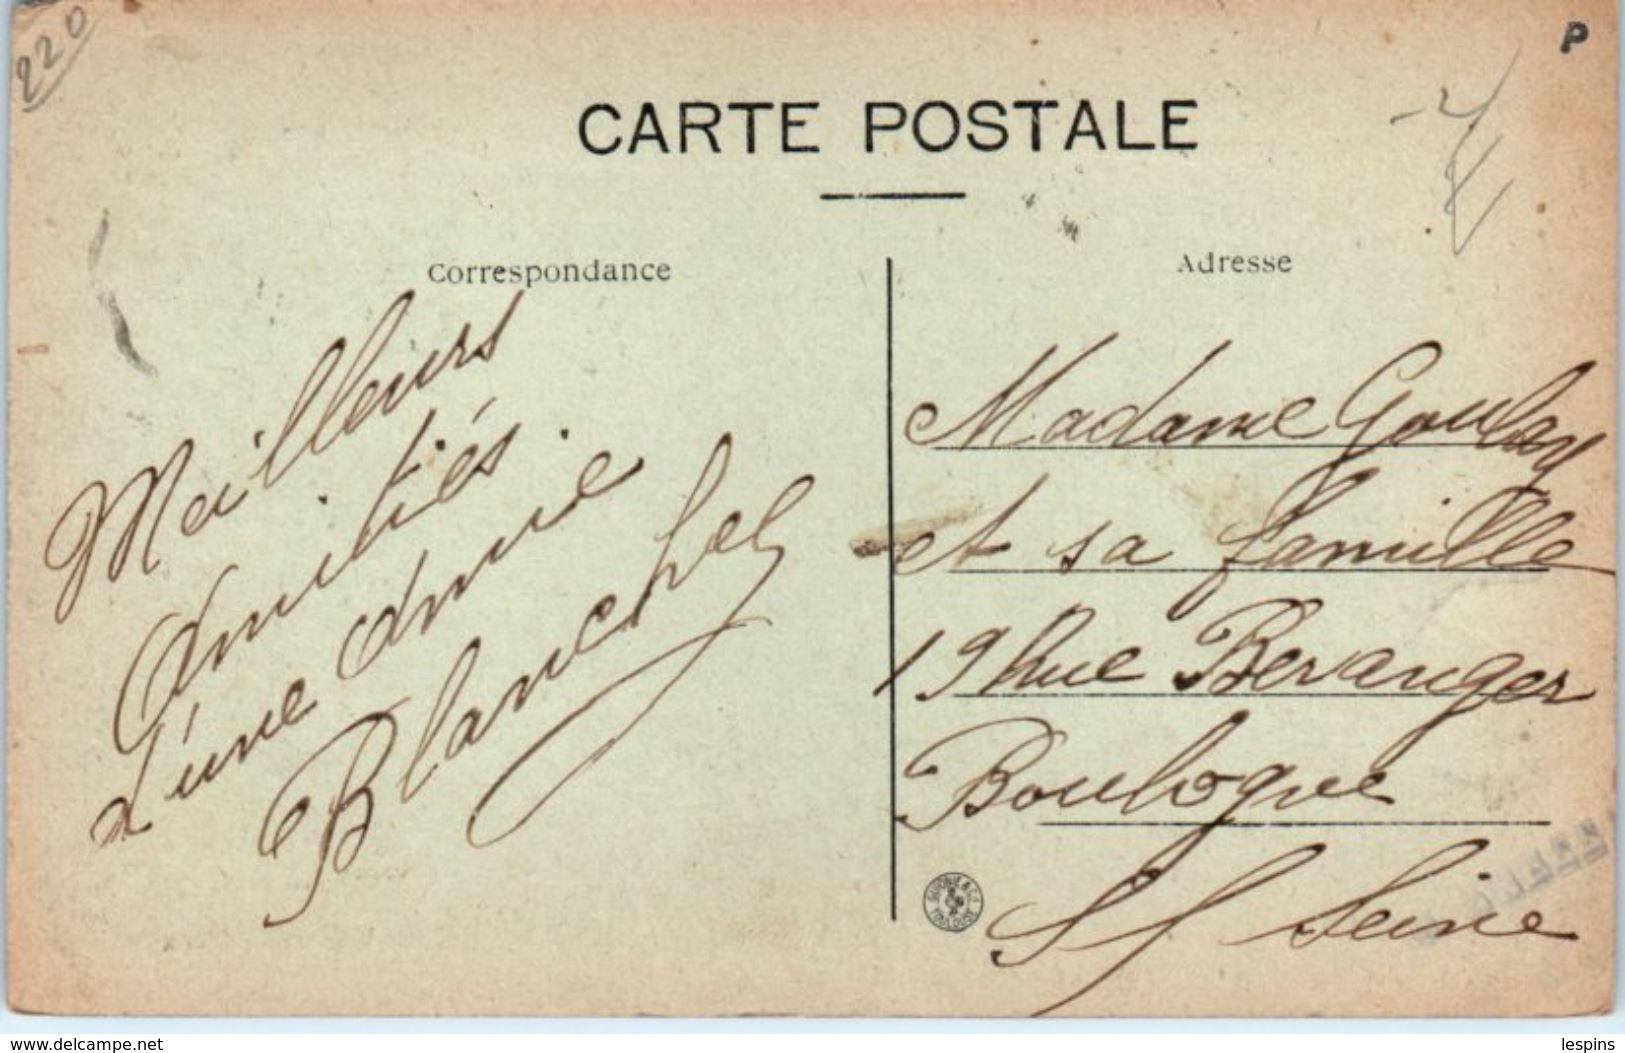 220
P
CARTE POSTALE
Correspondance
Meilleurs
Amitiés
d'une Amie
Blanche
Adresse
Madame Goulay
et sa famille
19 Rue Beranger
Boulogne
S/ Seine
TOULOUSE
www.delcampe.net
lespins